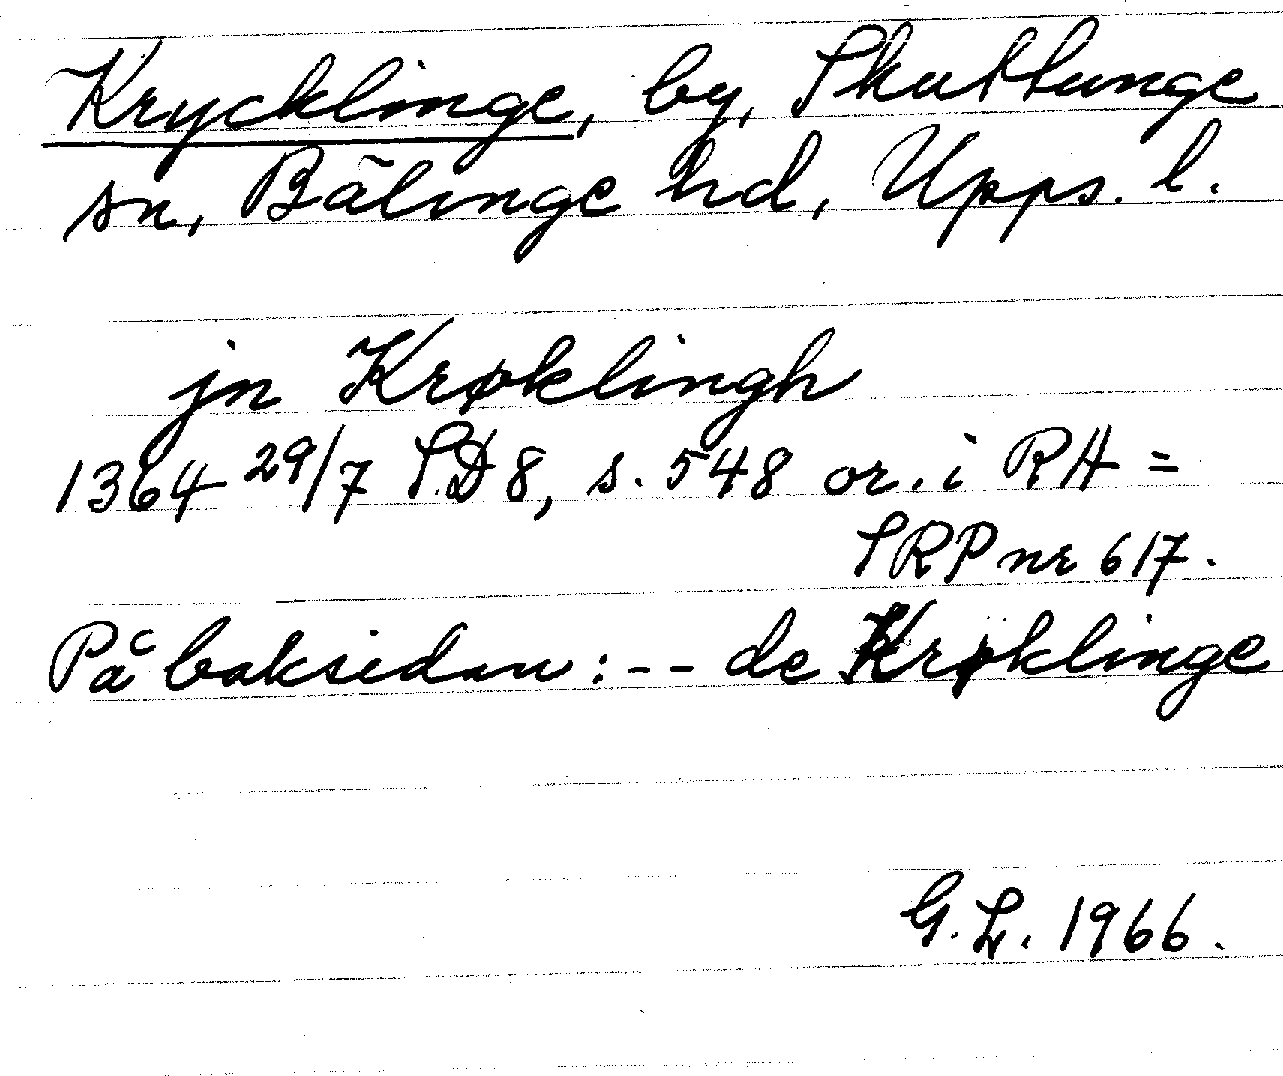 Krycklinge, by, Skuttunge
sn, Bälinge hd, Upps. l.
jn Krøklingh
1364 29/7 SD 8, s. 548 or. i RA =
SRP nr 617.
På baksidan: -- de Krøklinge
G. L. 1966.